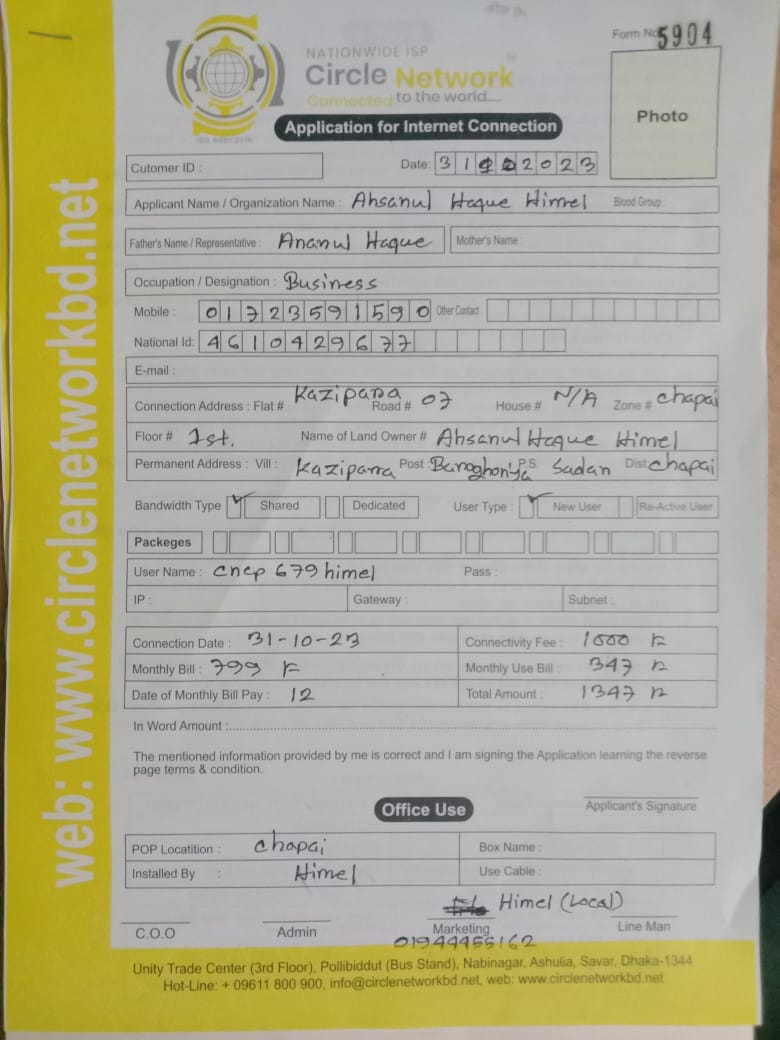 NATIONWIDE ISP
Circle Network
Connected to the world....
Form No 5904
Photo
Application for Internet Connection
Cutomer ID :
Date: 31 2023
Applicant Name / Organization Name : Ahsanul Haque Himel Blood Group :
Father's Name / Representative : Ananul Haque Mother's Name :
Occupation / Designation : Business
Mobile : 01723591590 Other Contact :
National Id: 4610429677
E-mail :
Connection Address : Flat # Kazipara Road # 07 House # N/A Zone # chapai
Floor # 1st. Name of Land Owner # Ahsanul Haque Himel
Permanent Address : Vill : Kaziparra Post Baroghoriya P.S. Sadar Dist: chapai
Bandwidth Type Shared Dedicated User Type : New User Re-Active User
Packeges
User Name : cncp 679 himel Pass :
IP : Gateway : Subnet :
Connection Date : 31-10-23 Connectivity Fee : 1000
Monthly Bill : 799 Monthly Use Bill : 347
Date of Monthly Bill Pay : 12 Total Amount : 1347
In Word Amount :
The mentioned information provided by me is correct and I am signing the Application learning the reverse
page terms & condition.
Applicant's Signature
Office Use
POP Locatition : chapai Box Name :
Installed By : Himel Use Cable :
Himel (Local)
C.O.O Admin Marketing Line Man
01944455162
Unity Trade Center (3rd Floor), Pollibiddut (Bus Stand), Nabinagar, Ashulia, Savar, Dhaka-1344
Hot-Line: + 09611 800 900, info@circlenetworkbd.net, web: www.circlenetworkbd.net
web: www.circlenetworkbd.net